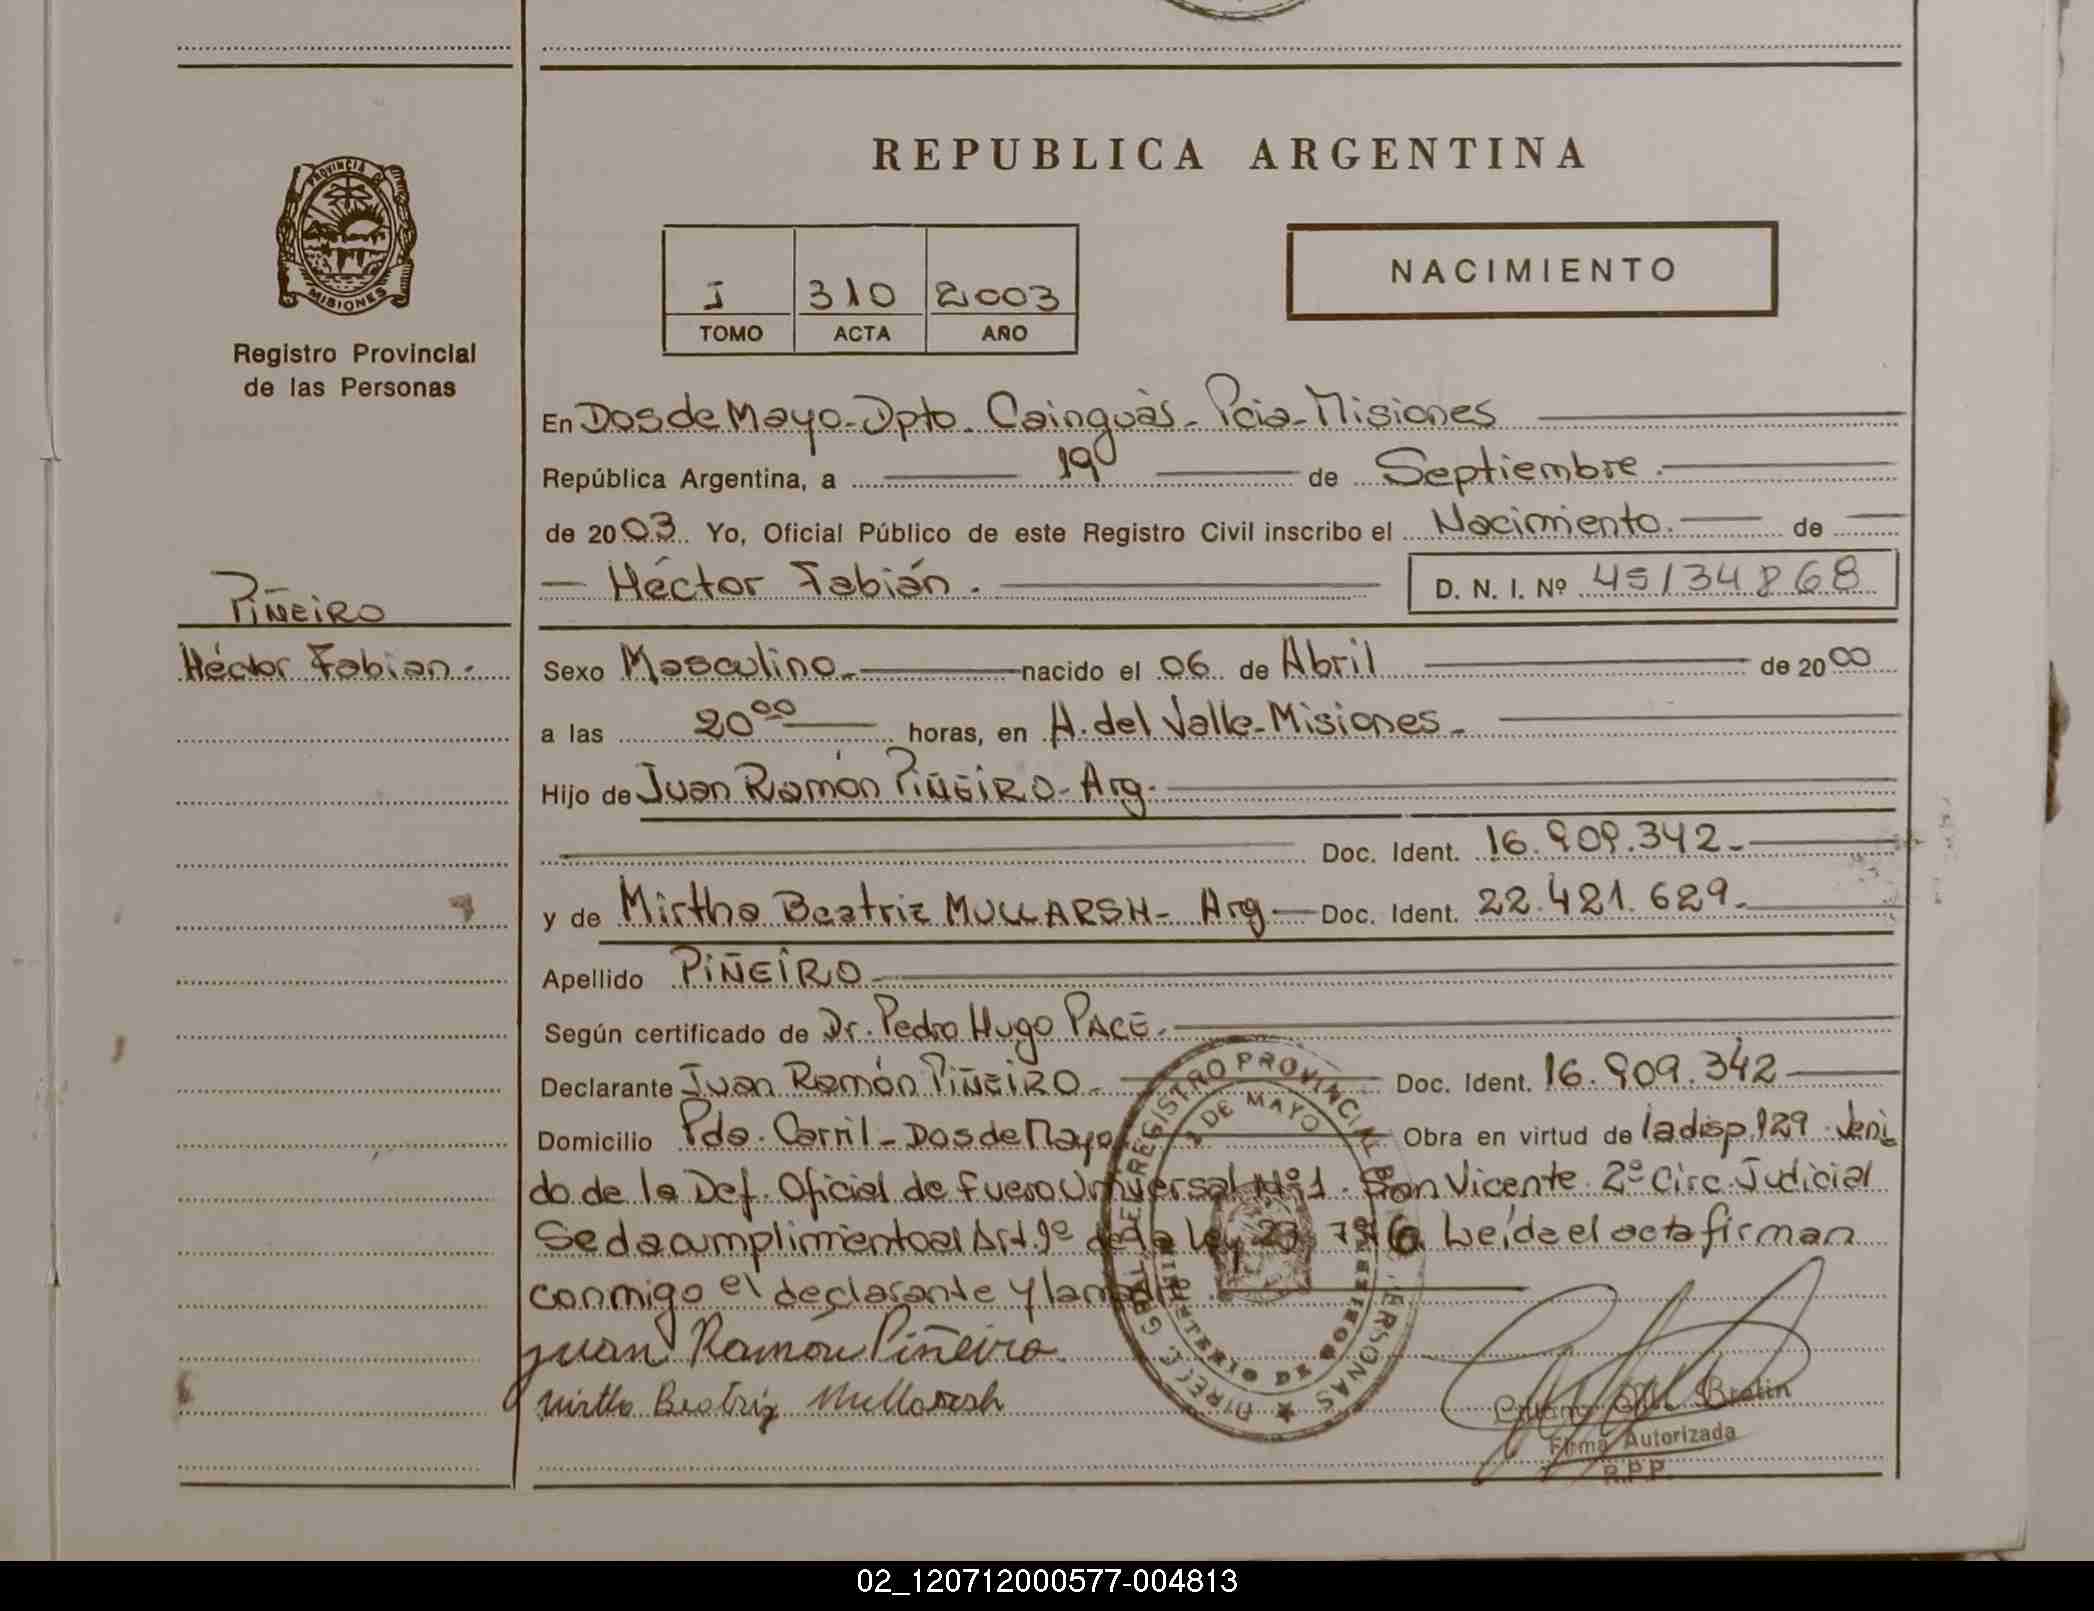 REPUBLICA ARGENTINA
PROVINCIA D
MISIONES
Registro Provincial
de las Personas
NACIMIENTO
I 310 2003
TOMO ACTA AÑO
En Dos de Mayo - Dpto. Cainguàs - Pcia - Misiones
República Argentina, a 19 de Septiembre.
de 2003. Yo, Oficial Público de este Registro Civil inscribo el Nacimiento. de
Héctor Fabián. D. N. I. Nº 45134868
PIÑEIRO
Héctor Fabian.
Sexo Masculino. nacido el 06 de Abril de 2000
a las 20⁰⁰ horas, en A. del Valle - Misiones.
Hijo de Juan Ramón PIÑEIRO - Arg.
Doc. Ident. 16.909.342.
y de Mirtha Beatriz MULLARSH - Arg. Doc. Ident. 22.421.629.
Apellido PIÑEIRO
Según certificado de Dr. Pedro Hugo PACE.
Declarante Juan Ramón PIÑEIRO. Doc. Ident. 16.909.342
Domicilio Pdo. Carril - Dos de Mayo Obra en virtud de la disp. 129. Veni
do de la Def. Oficial de fuero Universal Nº 1. San Vicente 2º Circ. Judicial
Se da cumplimiento al Art. 9º de la Ley 23.776. Leída el acta firman
conmigo el declarante y la madre.
Juan Ramón Piñeiro
Mirtha Beatriz Mullarsh
REGISTRO PROVINCIAL PERSONAS
DE MAYO
MINISTERIO DE GOBIERNO
Bratin
Firma Autorizada
R.P.P.
02_120712000577-004813